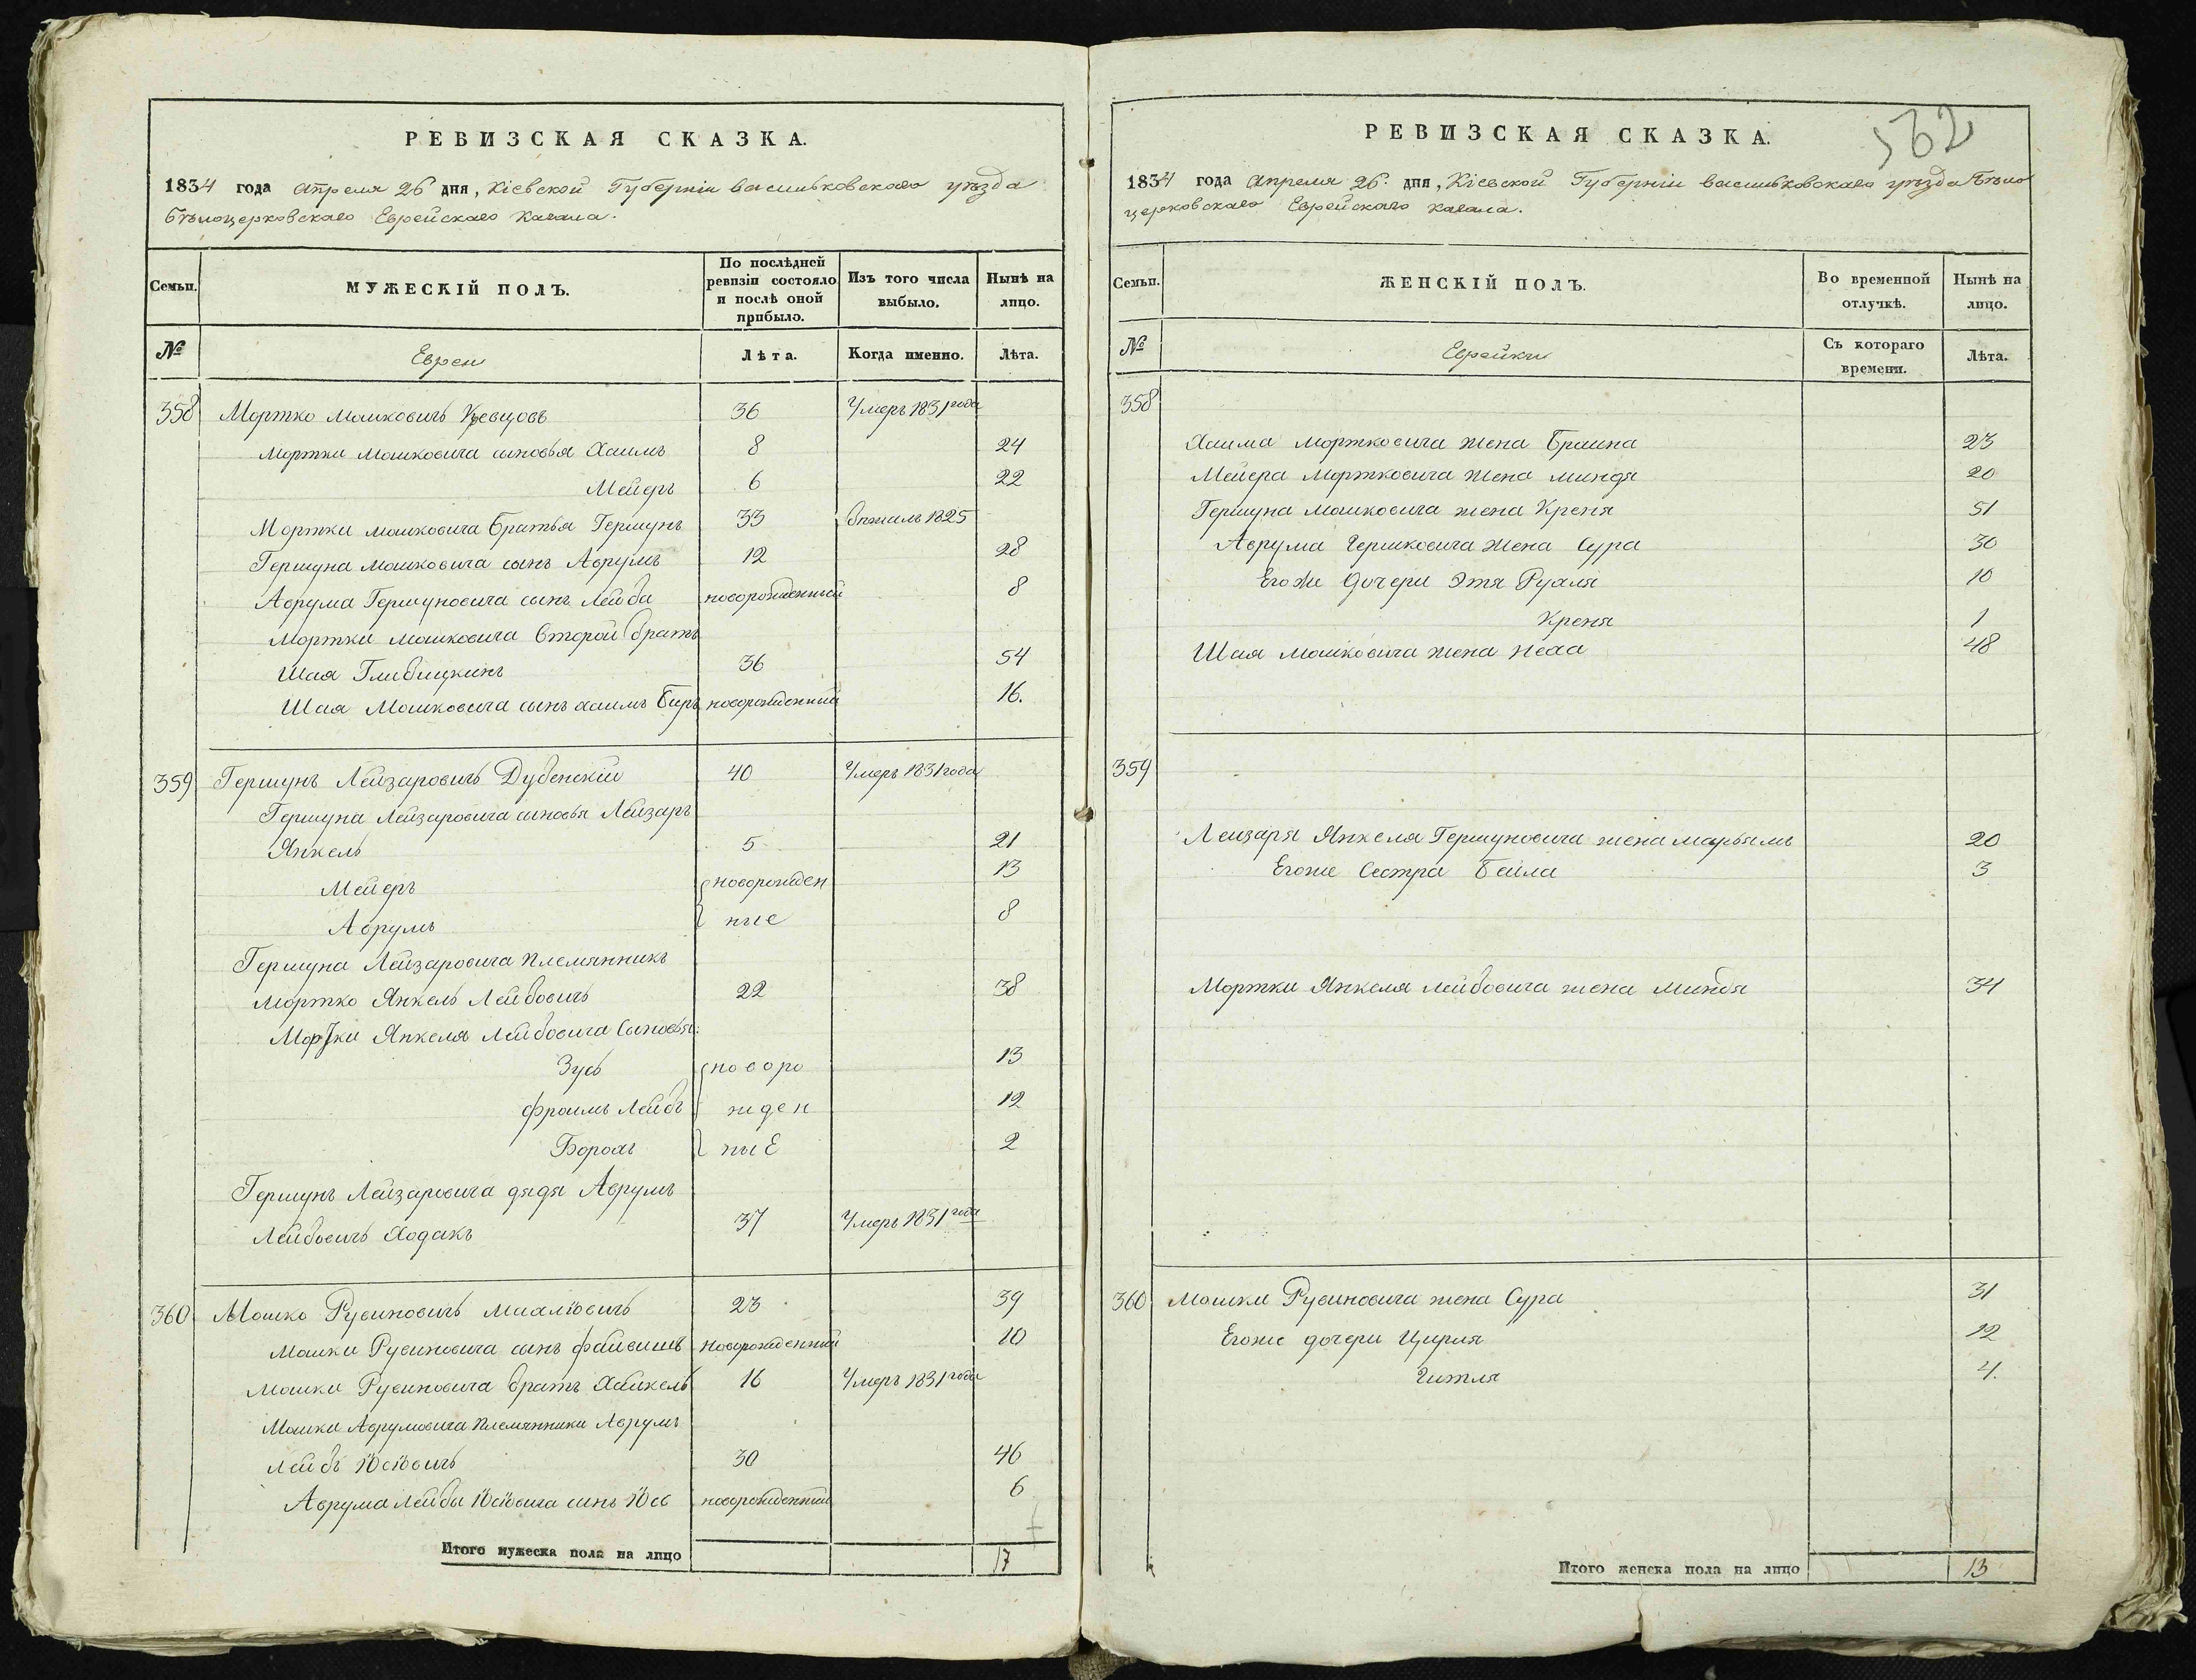 РЕВИЗСКАЯ СКАЗКА.
1834 года апреля 26 дня, Кіевской Губерніи васильковскаго уѣзда
бѣлоцерковскаго Еврейскаго Кагала.
Семьи.
МУЖЕСКІЙ ПОЛЪ.
По послѣдней ревизіи состояло и послѣ оной прибыло.
Изъ того числа выбыло.
Нынѣ на лицо.
№
Евреи
Лѣта.
Когда именно.
Лѣта.
358 Мортко Мошковичъ 36 Умеръ 1831 года
Мортки Мошковича сыновья Хаимъ 8 24
Мейеръ 6 22
Мортки Мошковича братья Гершунъ 33 бѣжалъ 1825
Гершуна Мошковича сынъ Аврумъ 12 28
Аврума Гершуновича сынъ Лейба новорожденный 8
Мортки Мошковича второй братъ
Шая 36 54
Шая Мошковича сынъ хаимъ Беръ новорожденный 16.
359 Гершунъ Лейзаровичъ Дубенскій 40 Умеръ 1831 года
Гершуна Лейзаровича сыновья Лейзаръ
Янкель 5 21
Мейеръ новорожден 13
Аврумъ ные 8
Гершуна Лейзаровича племянникъ
Мортко Янкель Лейбовичъ 22 38
Мортки Янкеля Лейбовича Сыновья:
Зусь новоро 13
фроимъ Лейбъ жден 12
Борохъ ные 2
Гершунъ Лейзаровича дядя Аврумъ
Лейбовичъ Ходакъ 37 Умеръ 1831 года
360 Мошко Рувиновичъ 23 39
Мошки Рувиновича сынъ файвишъ новорожденный 10
Мошки Рувиновича братъ Хайкель 16 Умеръ 1831 года
Мошки Аврумовича племянники Аврумъ
Лейбъ Іосіовичъ 30 46
Аврума Лейбы Іосіовича сынъ Іось новорожденный 6
Итого мужеска пола на лицо 17
РЕВИЗСКАЯ СКАЗКА.
562
1834 года апреля 26. дня, Кіевской Губерніи васильковскаго уѣзда Бѣло
церковскаго Еврейскаго кагала.
Семьи.
ЖЕНСКІЙ ПОЛЪ.
Во временной отлучкѣ.
Нынѣ на лицо.
№
Еврейки
Съ котораго времени.
Лѣта.
358
Хаима Мортковича жена Браина 23
Мейера Мортковича жена миндя 20
Гершуна Мошковича жена Креня 51
Аврума Гершковича жена Сура 30
Егоже дочери Этя Рухля 10
Креня 1
Шая Мошковича жена Неха 48
359
Лейзаря Янкеля Гершуновича жена марьямъ 20
Егоже Сестра Бейла 3
Мортки Янкеля Лейбовича жена Миндя 34
360 Мошки Рувиновича жена Сура 31
Егоже дочери Цирля 12
Гитля 4.
Итого женска пола на лицо 13